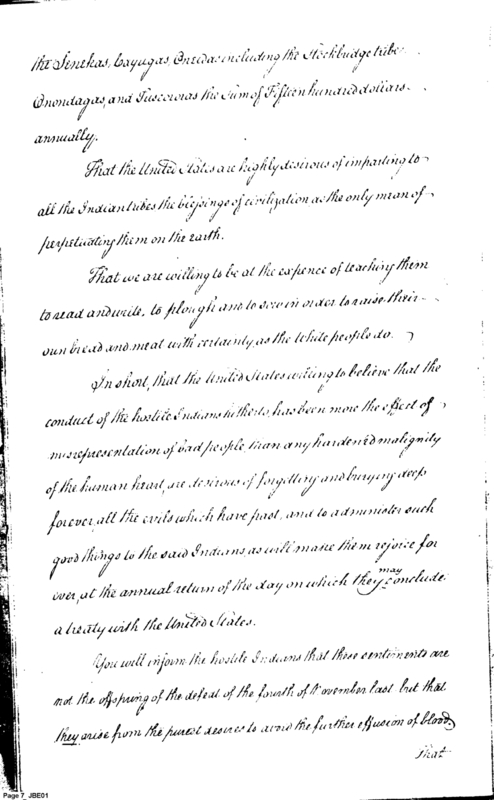 the Senekas, Cayugas, Oneidas including the Stockbridge tribe
Onondagas, and Tuscororas the Sum of Fifteen hundred dollars
annually.
That the United States are highly desirous of imparting to
all the Indian tribes the blessings of civilization as the only mean of
perpetuating them on the earth.
That we are willing to be at the expence of teaching them
to read and write, to plough and to sow in order to raise their
own bread and meat with certainty, as the White people do.
In short, that the United States willing to believe that the
conduct of the hostile Indians hitherto, has been more the effect of
misrepresentation of bad people, than any hardened malignity
of the human heart, are desirous of forgetting and burying deep
forever, all the evils which have past, and to administer such
good things to the said Indians, as will make them rejoice for
ever, at the annual return of the day on which they may conclude
a treaty with the United States.
You will inform the hostile Indians that these sentiments are
not the offspring of the defeat of the fourth of November last but that
they arise from the purest desires to avoid the further effusion of blood,
That
Page 7_JBE01